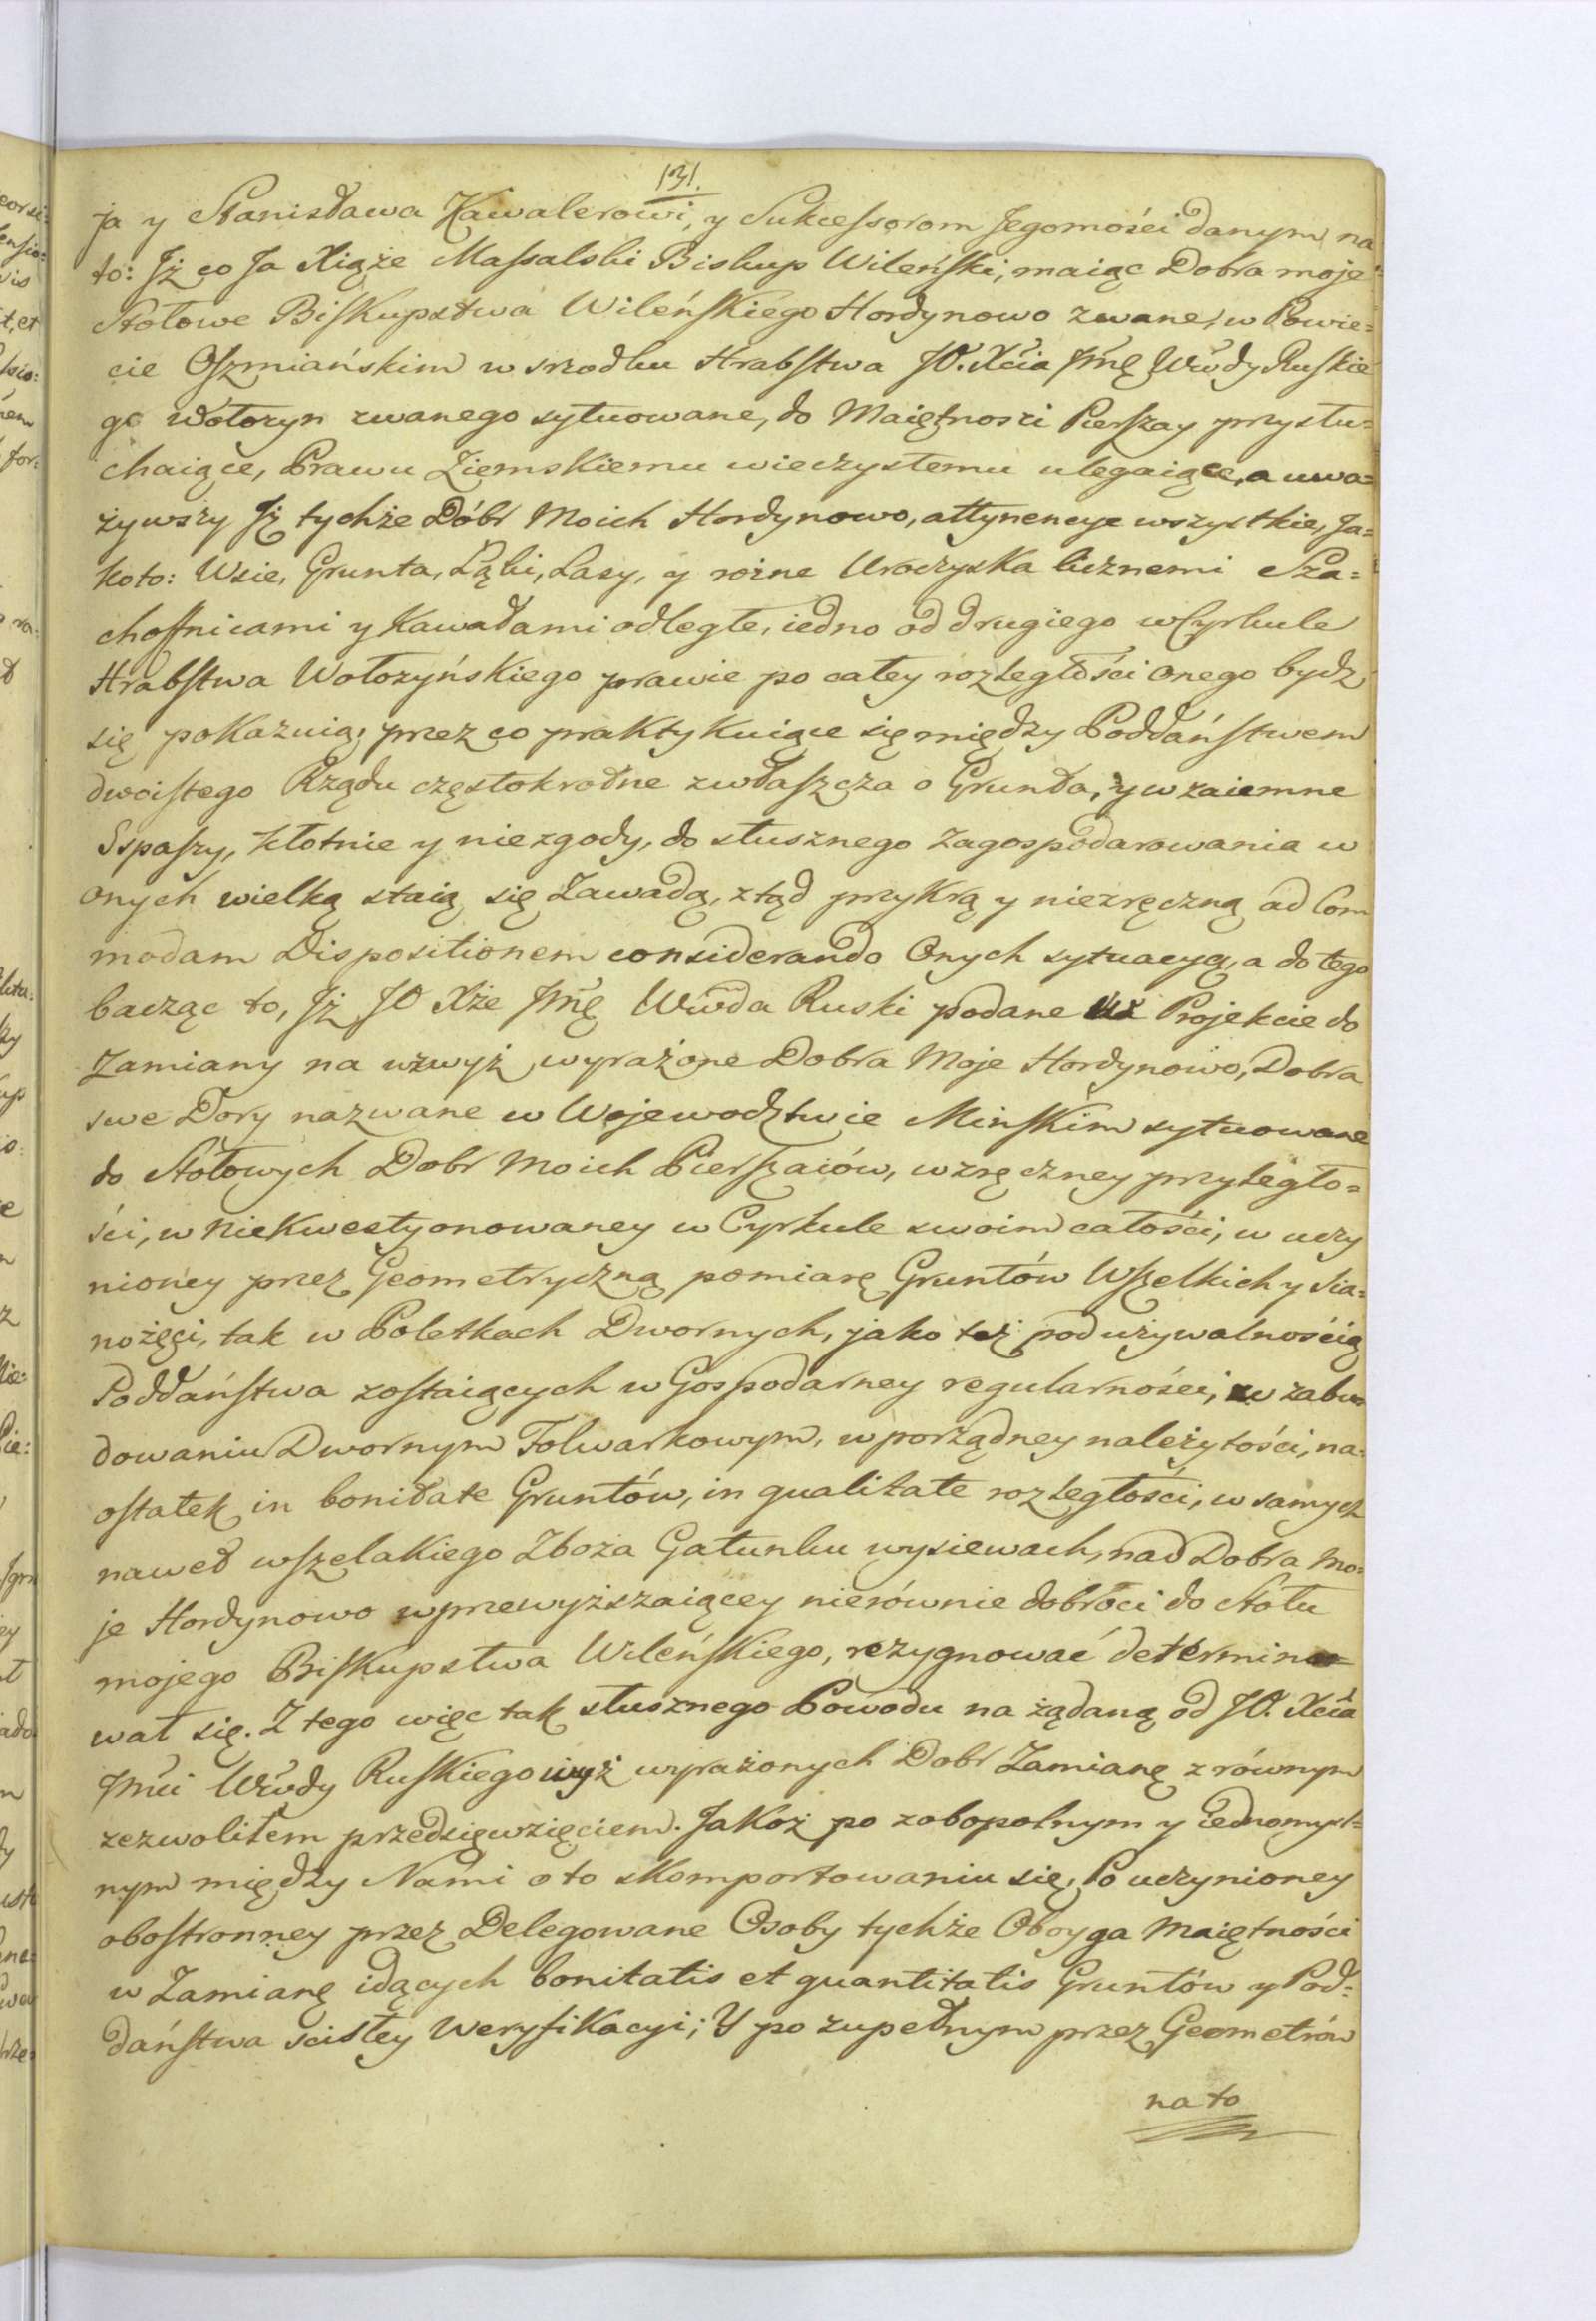 131.
ja y Stanisława Kawalerowi, y Sukcessorom Jegomości danym na
to: Jż co Ja Xiąże Massalski Biskup Wileński, maiąc Dobra moje
Stołowe Biskupstwa Wileńskiego Hordynowo zwane, w Powie=
cie Oszmiańskim w srzodku Hrabstwa JO. Xcia Jmę Wwdy Ruskie
go Wołozyn zwanego sytuowane, do Maiętnosci Pierszay przysłu=
chaiące, Prawu Ziemskiemu wieczystemu ulegaiące, a uwa=
żywszy Jż tychże Dóbr Moich Hordynowo, attynencye wszystkie, Ja=
koto: Wsie, Grunta, Łąki, Lasy, y rożne Uroczyska licznemi Sza=
chownicami y Kawałami odległe, iedno od drugiego w Cyrkule
Hrabstwa Wołozyńskiego prawie po całey rozległości onego bydz
się pokazuią, przez co praktykuiące się między Poddaństwem
dwoistego Rządu częstokrotne zwłaszcza o Grunta, y wzaiemne
Spaszy, kłotnie y niezgody, do słusznego zagospodarowania w
onych wielką staią się Zawadą, ztąd przykrą y niezręczną ad Com
modam Dispositionem considerando Onych sytuacyą, a do tego
bacząc to, Jż JO Xże Jmę Wwda Ruski podane w Projekcie do
Zamiany na wzwyż wyrażone Dobra Moje Hordynowo, Dobra
swe Dory nazwane w Wojewodztwie Minskim sytuowane
do Stołowych Dobr Moich Pierszaiów, w zręczney przyległo=
ści, w niekwestyonowaney w Cyrkule swoim całości, w uczy
nioney przez Geometryczną pomiarę Gruntów Wszelkich y Sia=
nożęci, tak w Poletkach Dwornych, jako też pod używalnością
Poddaństwa zostaiących w Gospodarney regularności, w zabu
dowaniu Dwornym Folwarkowym, w porządney należytości, na=
ostatek in bonitate Gruntów, in qualitate rozległości, w samych
nawet wszelakiego Zboża Gatunku wysiewach, nad Dobra mo=
je Hordynowo w przewyższaiącey nierównie dobroci do Stołu
mojego Biskupstwa Wileńskiego, rezygnować determino=
wał się. Z tego więc tak słusznego Powodu na żądaną od JO. Xcia
Jmci Wwdy Ruskiego wyż wyrażonych Dobr Zamianę z równym
zezwoliłem przedsięwzięciem. Jakoż po zobopolnym y Jednomysl=
nym między Nami o to skomportowaniu się, Po uczynioney
obostronney przez Delegowane Osoby tychże Oboyga Maiętności
w Zamianę idących bonitatis et quantitatis Gruntów y Pod=
daństwa scisłey Weryfikacyi; Y po zupełnym przez Geometrów
na to